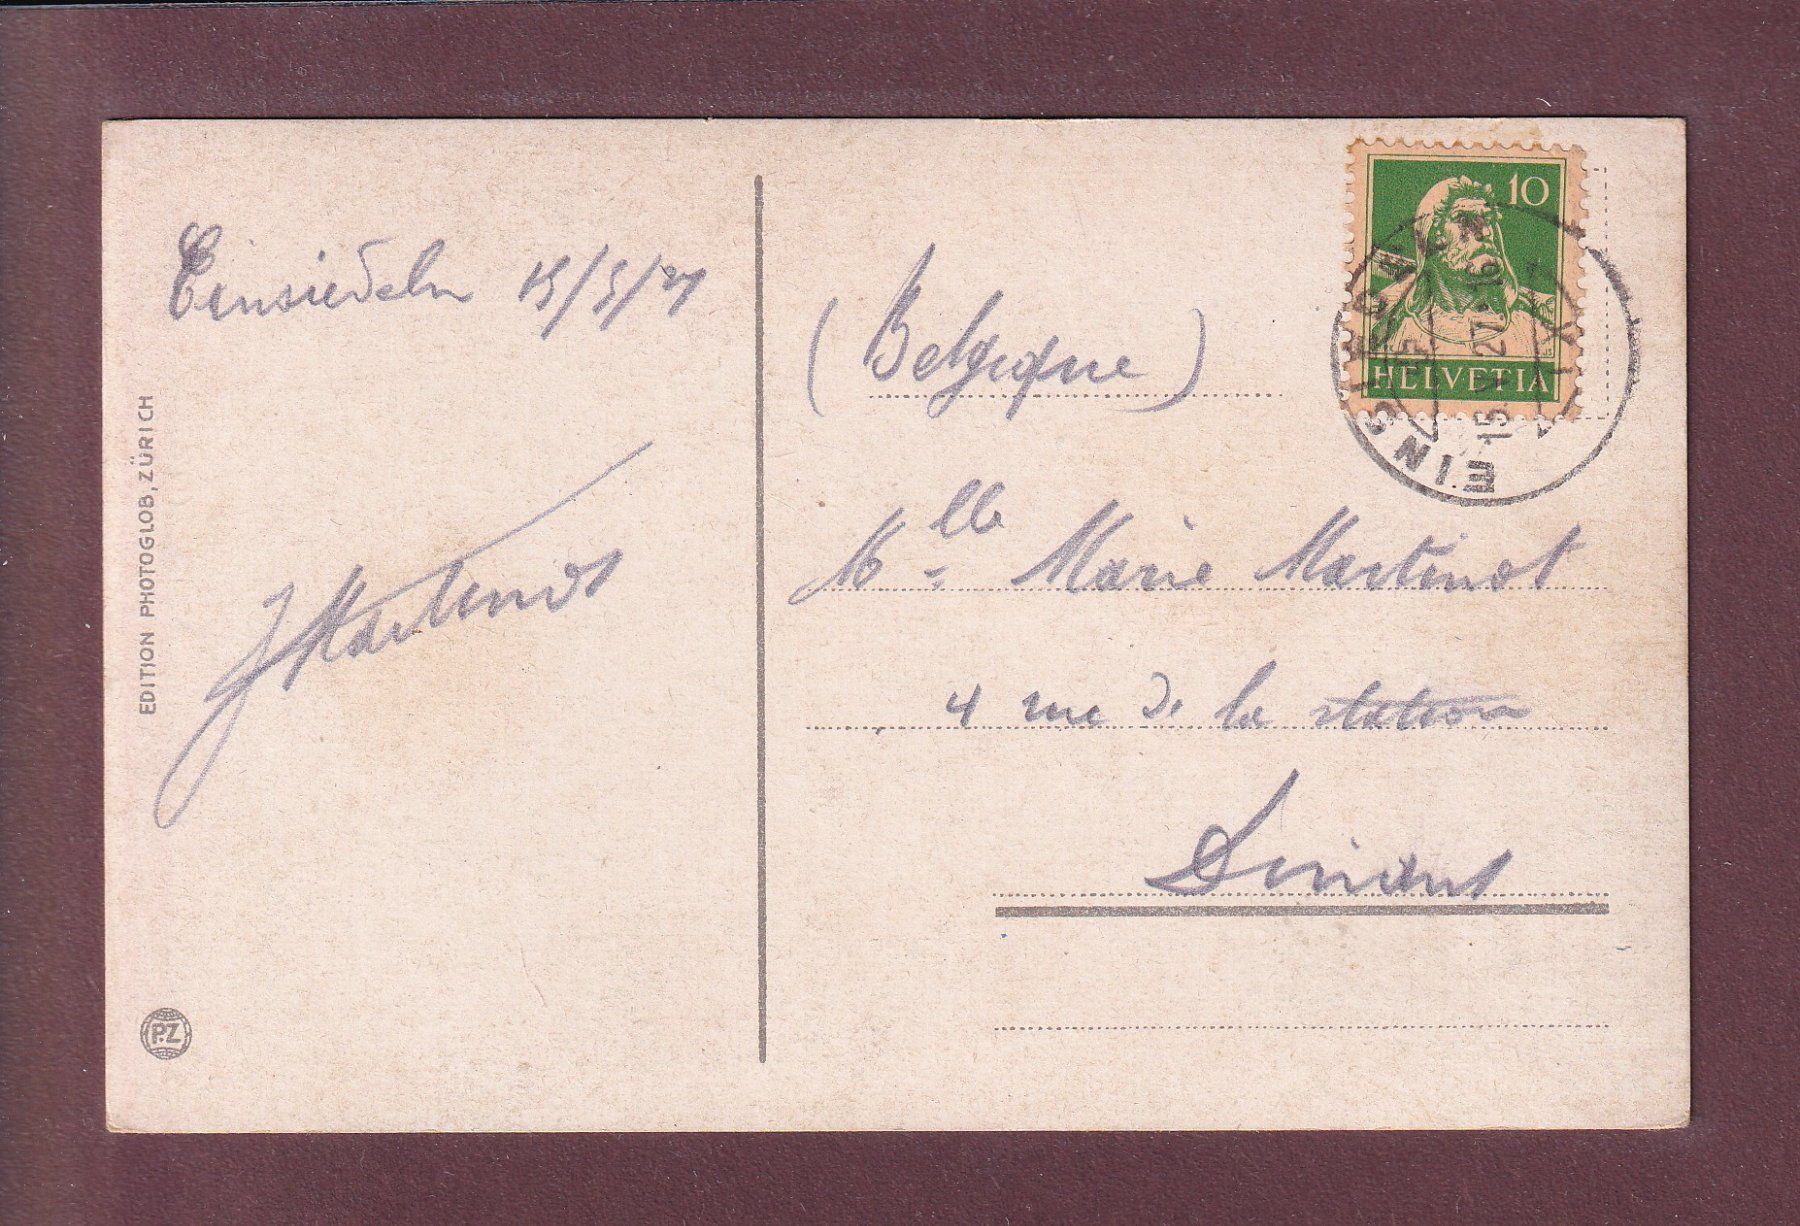 Einsiedeln 15/5/27
J Martinot
EDITION PHOTOGLOB, ZÜRICH
P.Z
10
HELVETIA
EINSIEDELN
15. V. 27. 16
(Belgique)
Mlle Marie Martinot
4 rue de la station
Dinant